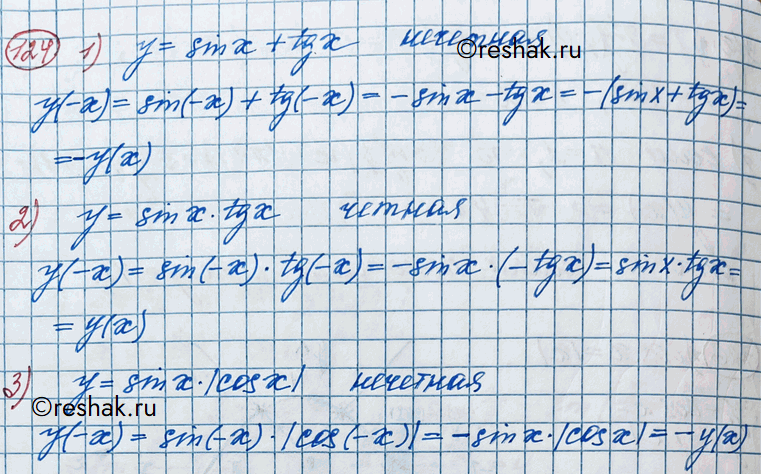 124 1) y = sin x + tg x нечетная
©reshak.ru
y(-x) = sin(-x) + tg(-x) = - sin x - tg x = -(sin x + tg x) =
= -y(x)
2) y = sin x · tg x четная
y(-x) = sin(-x) · tg(-x) = - sin x · (- tg x) = sin x · tg x =
= y(x)
3) y = sin x · |cos x| нечетная
©reshak.ru
y(-x) = sin(-x) · |cos(-x)| = - sin x · |cos x| = -y(x)